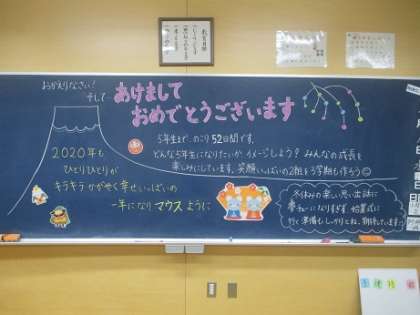 おかえりなさい！
そして…
あけまして
おめでとうございます
5年生まで、のこり52日間です。
どんな5年生になりたいか イメージしよう？ みんなの成長を
楽しみにしています。笑顔いっぱいの2組を3学期も作ろう
2020年も
ひとりひとりが
キラキラかがやく幸せいっぱいの
一年になりマウスように
冬休みの楽しい思い出話に
夢チューになりすぎず、始業式に
行く準備もしっかりとね。期待しています